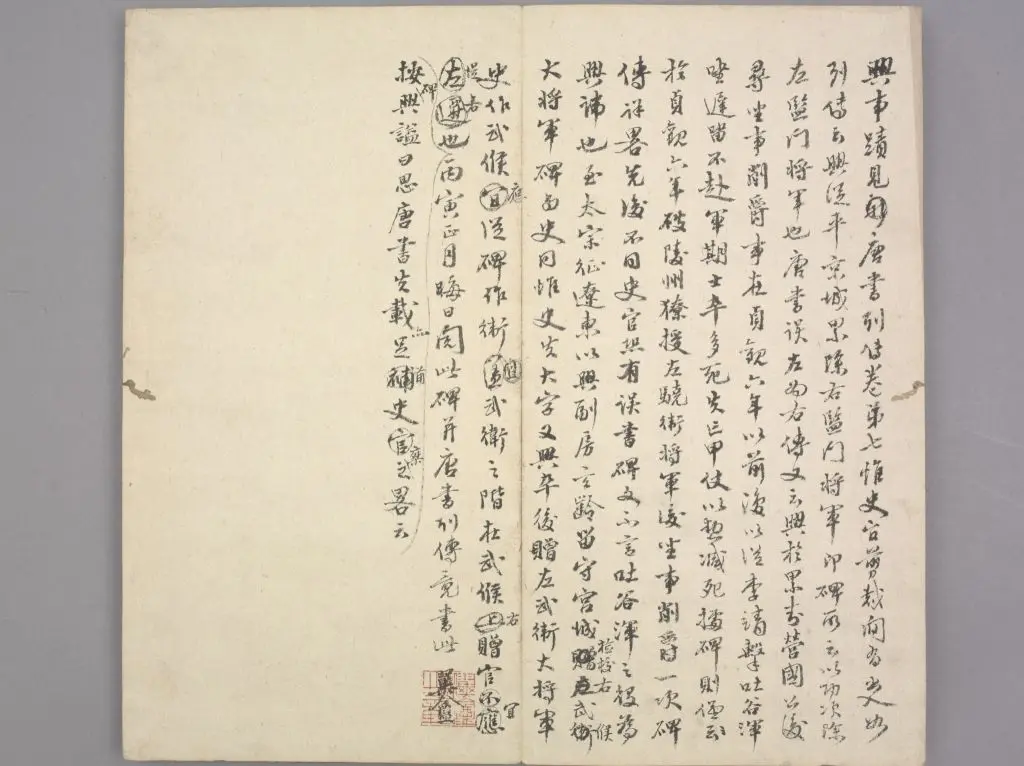 興事蹟見新唐書列傳卷第七惟史官剪裁間有出入如
列傳云興從平京城累除右監門將軍即碑所云以功次除
左監門將軍也唐書誤左為右傳又云興於累封營國公後
尋坐事削爵事在貞觀六年以前後以從李靖擊吐谷渾
坐遲留不赴軍期士卒多死失亡甲仗以勳減死據碑則僅云
於貞觀六年破陵州獠授左驍衛將軍後坐事削爵一次碑
傳詳畧先後不同史官然有誤書碑文不言吐谷渾之役為
興諱也至太宗征遼東以興副房玄齡留守宮城檢校右武候
大將軍碑與史同惟史失大字又興卒後贈左武衛大將軍
史作武候應從碑作衛武衛之階在武候右贈官不宜
左遷也丙寅正月晦日閱此碑并唐書列傳竟書此
按碑興謚曰思唐書失載足補史官之畧云